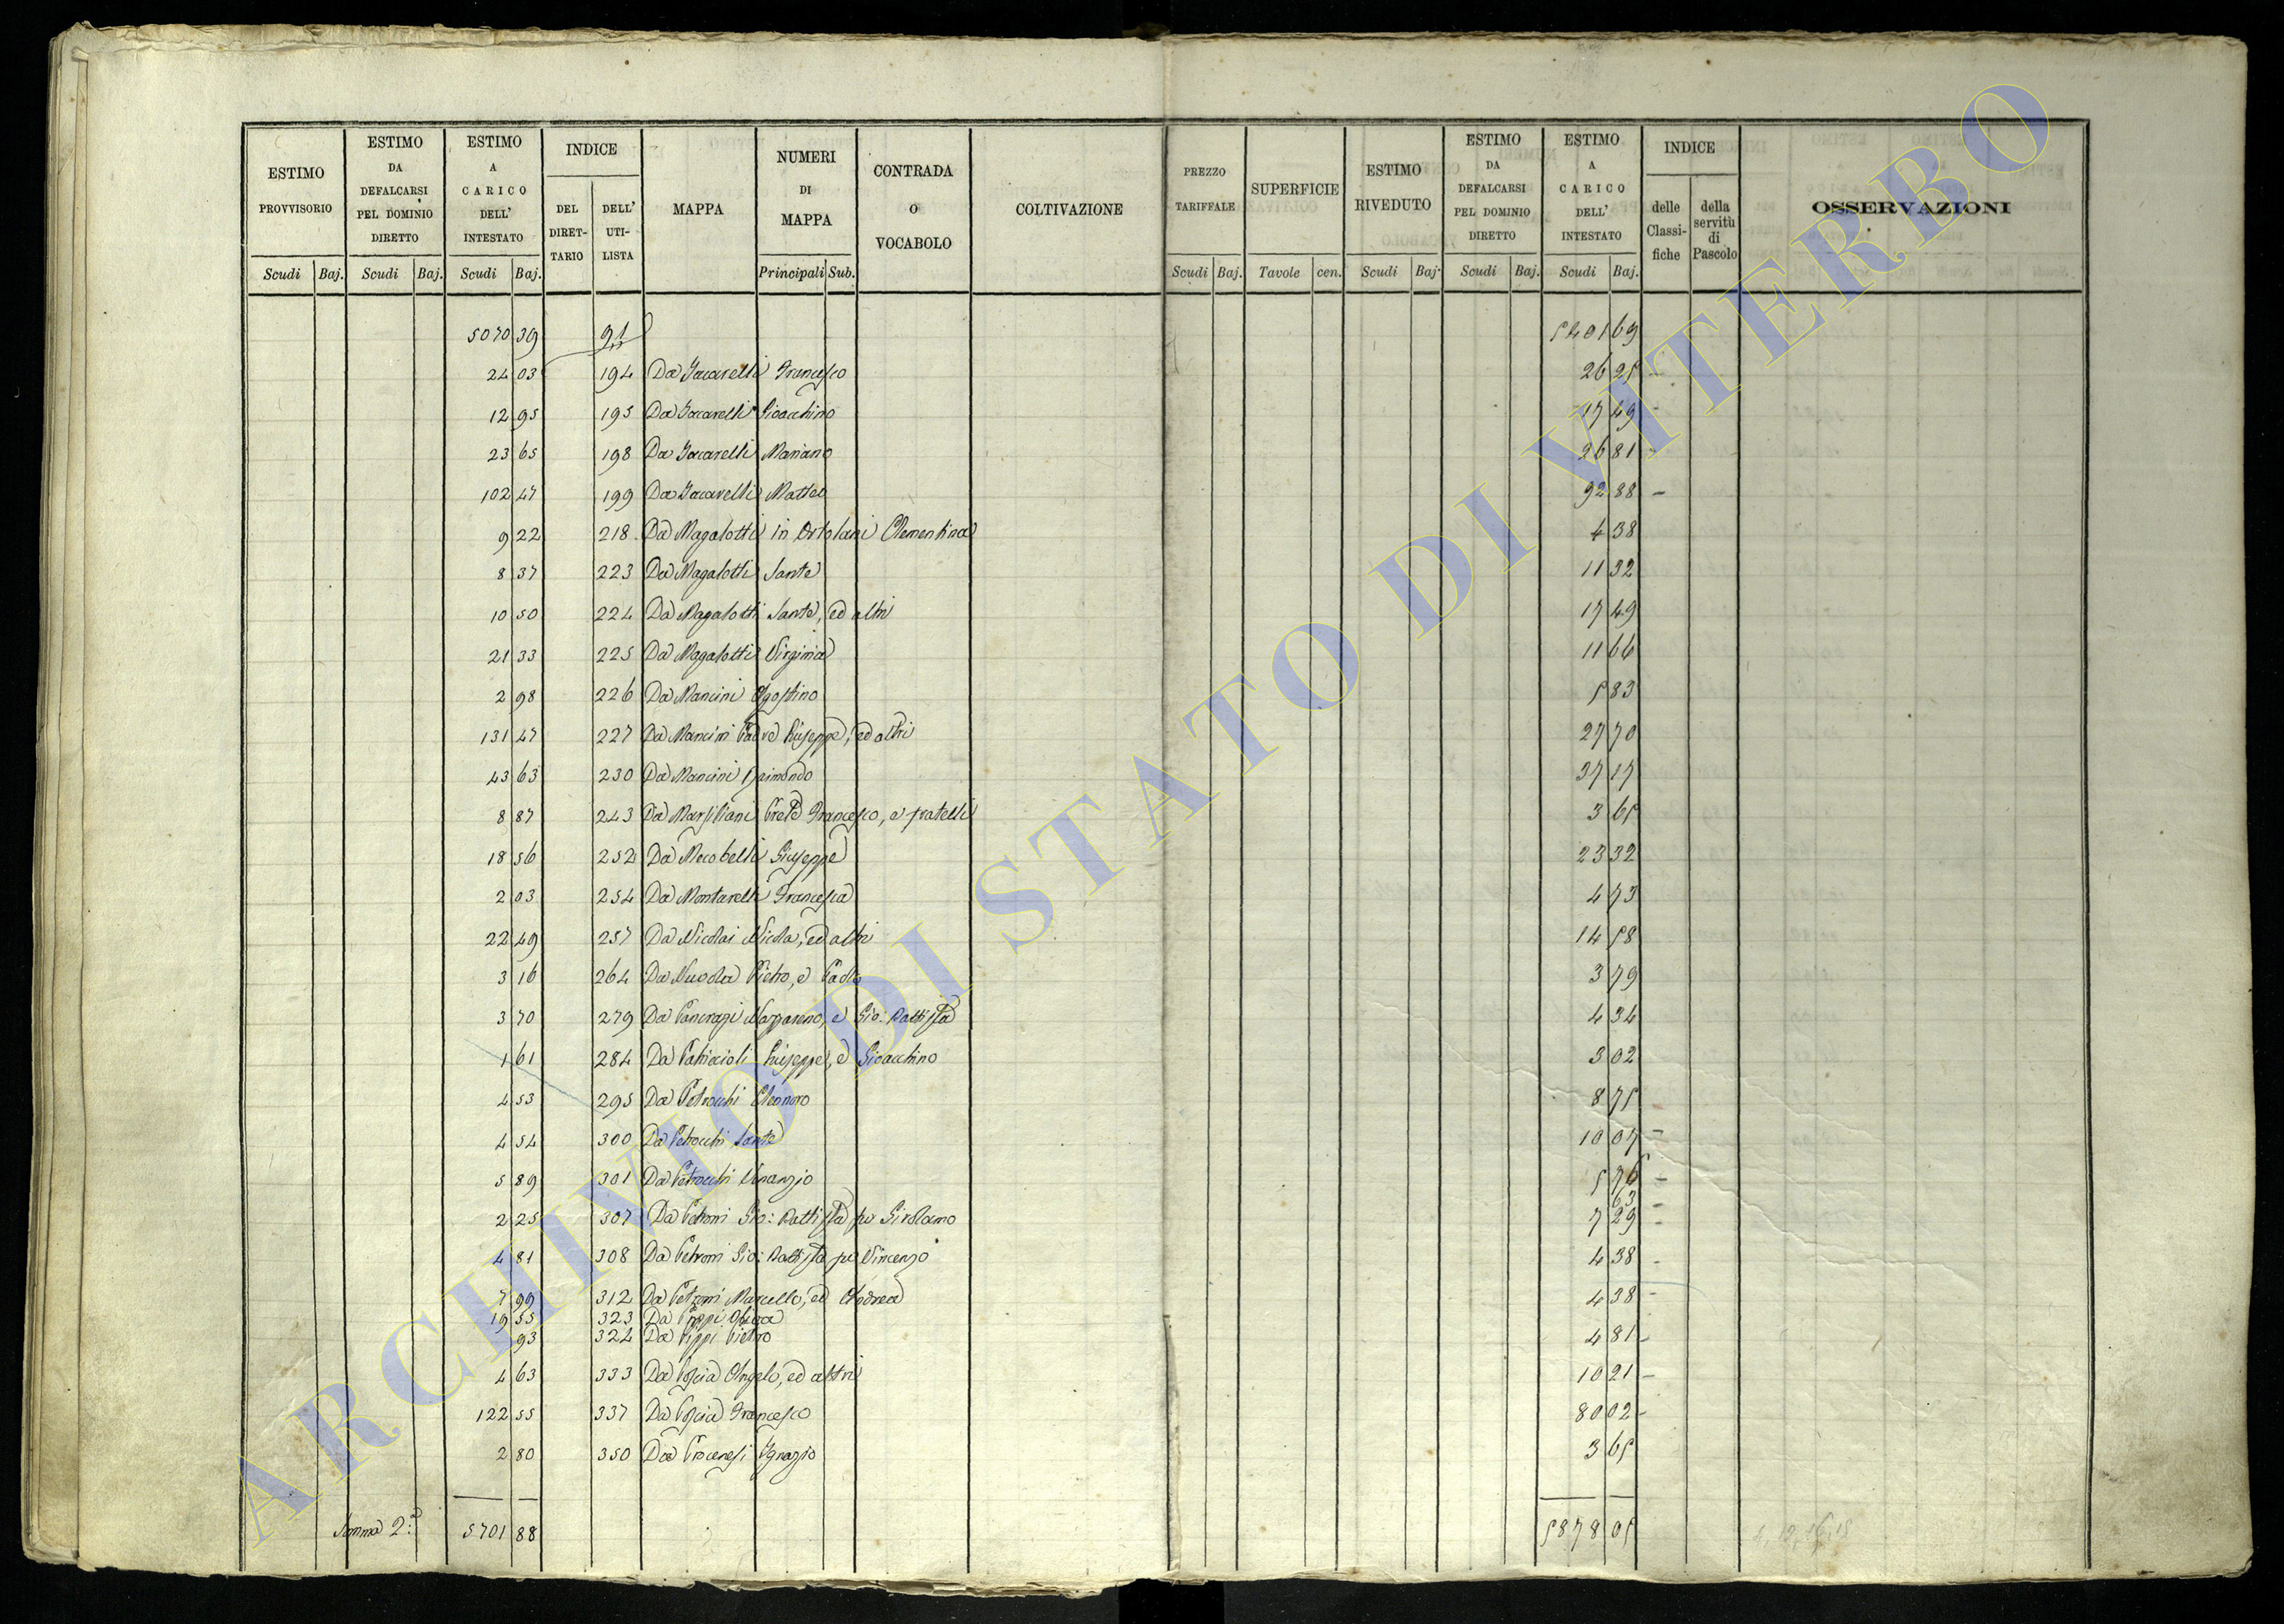 ESTIMO PROVVISORIO | ESTIMO DA DEFALCARSI PEL DOMINIO DIRETTO | ESTIMO A CARICO DELL' INTESTATO | INDICE DEL DIRET-TARIO | DELL' UTI-LISTA | MAPPA | NUMERI DI MAPPA | CONTRADA O VOCABOLO | COLTIVAZIONE | PREZZO TARIFFALE | SUPERFICIE | ESTIMO RIVEDUTO | ESTIMO DA DEFALCARSI PEL DOMINIO DIRETTO | ESTIMO A CARICO DELL' INTESTATO | INDICE delle Classi-fiche | della servitù di Pascolo | OSSERVAZIONI
Scudi | Baj. | Scudi | Baj. | Scudi | Baj. | Principali | Sub. | Scudi | Baj. | Tavole | cen. | Scudi | Baj. | Scudi | Baj. | Scudi | Baj.
5070 39 | 91 | 5401 69
24 03 | 194 | Da Jacarelli Francesco | 26 25 -
12 95 | 195 | Da Jacarelli Gioacchino | 17 49 -
23 65 | 198 | Da Jacarelli Mariano | 26 81 -
102 47 | 199 | Da Jacarelli Matteo | 92 88 -
9 22 | 218 | Da Magalotti in Ortolani Clementina | 4 38
8 37 | 223 | Da Magalotti Sante | 11 32
10 50 | 224 | Da Magalotti Sante, ed altri | 17 49
21 33 | 225 | Da Magalotti Virginia | 11 66
2 98 | 226 | Da Mancini Agostino | 5 83
131 47 | 227 | Da Mancini Padre Giuseppe, ed altri | 27 70
43 63 | 230 | Da Mancini | 37 17
8 87 | 243 | Da Marsiliani Prete Francesco, e fratelli | 3 65
18 56 | 252 | Da Mecobelli Giuseppe | 23 32
2 03 | 254 | Da Montarelli Francesca | 4 73
22 49 | 257 | Da Nicolai Nicola, ed altri | 14 58
3 16 | 264 | Da Nuvola Pietro, e Paolo | 3 79
3 70 | 279 | Da Pancrazi Nazzareno, e Gio: Battista | 4 34
1 61 | 284 | Da Patriccioli Giuseppe, e Gioacchino | 3 02
4 53 | 295 | Da Petrocchi Eleonoro | 8 75
4 54 | 300 | Da Petrocchi Sante | 10 07 -
5 89 | 301 | Da Petrocchi Venanzio | 5 76 -
63 -
2 25 | 307 | Da Petroni Gio: Battista fu Girolamo | 7 29 -
4 81 | 308 | Da Petroni Gio: Battista fu Vincenzo | 4 38 -
7 99 | 312 | Da Petroni Marcello, ed Andrea | 4 38 -
19 55 | 323 | Da
93 | 324 | Da Pippi Pietro | 4 81 -
4 63 | 333 | Da Poscia Angelo, ed altri | 10 21 -
122 55 | 337 | Da Poscia Francesco | 80 02 -
2 80 | 350 | Da Procenesi Ignazio | 3 65
Somma 2ª: | 5701 88 | 5878 05
ARCHIVIO DI STATO DI VITERBO